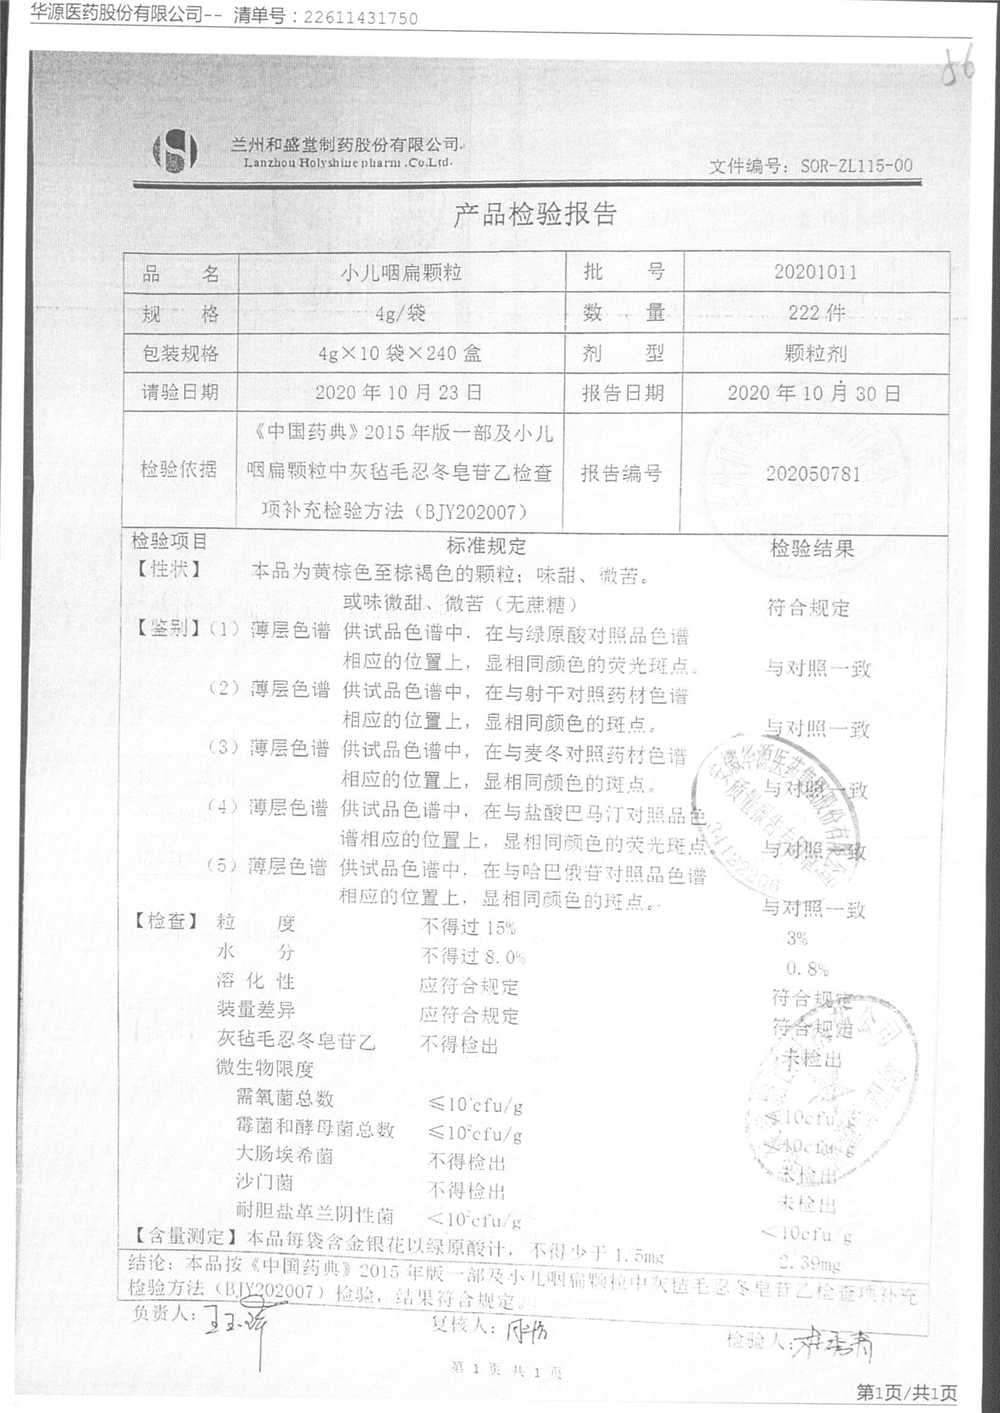 华源医药股份有限公司-- 清单号：22611431750
56
兰州和盛堂制药股份有限公司
Lanzhou Holyshine pharm .Co.Ltd.
文件编号：SOR-ZL115-00
产品检验报告
品 名 小儿咽扁颗粒 批 号 20201011
规 格 4g/袋 数 量 222 件
包装规格 4g×10 袋×240 盒 剂 型 颗粒剂
请验日期 2020 年 10 月 23 日 报告日期 2020 年 10 月 30 日
检验依据 《中国药典》2015 年版一部及小儿
咽扁颗粒中灰毡毛忍冬皂苷乙检查
项补充检验方法（BJY202007） 报告编号 202050781
检验项目 标准规定 检验结果
【性状】 本品为黄棕色至棕褐色的颗粒；味甜、微苦。
或味微甜、微苦（无蔗糖） 符合规定
【鉴别】（1）薄层色谱 供试品色谱中，在与绿原酸对照品色谱
相应的位置上，显相同颜色的荧光斑点。 与对照一致
（2）薄层色谱 供试品色谱中，在与射干对照药材色谱
相应的位置上，显相同颜色的斑点。 与对照一致
（3）薄层色谱 供试品色谱中，在与麦冬对照药材色谱
相应的位置上，显相同颜色的斑点。 与对照一致
（4）薄层色谱 供试品色谱中，在与盐酸巴马汀对照品色
谱相应的位置上，显相同颜色的荧光斑点 与对照一致
（5）薄层色谱 供试品色谱中，在与哈巴俄苷对照品色谱
相应的位置上，显相同颜色的斑点。 与对照一致
【检查】 粒 度 不得过 15% 3%
水 分 不得过 8.0% 0.8%
溶 化 性 应符合规定 符合规定
装量差异 应符合规定 符合规定
灰毡毛忍冬皂苷乙 不得检出 未检出
微生物限度
需氧菌总数 cfu/g <10cfu/g
霉菌和酵母菌总数 ≤10²cfu/g <10cfu/g
大肠埃希菌 不得检出 未检出
沙门菌 不得检出 未检出
耐胆盐革兰阴性菌 <10²cfu/g <10cfu/g
【含量测定】本品每袋含金银花以绿原酸计，不得少于 1.5mg 2.39mg
结论：本品按《中国药典》2015 年版一部及小儿咽扁颗粒中灰毡毛忍冬皂苷乙检查项补充
检验方法（BJY202007）检验，结果符合规定。
负责人： 复核人： 检验人：
第 1 页 共 1 页
第1页/共1页